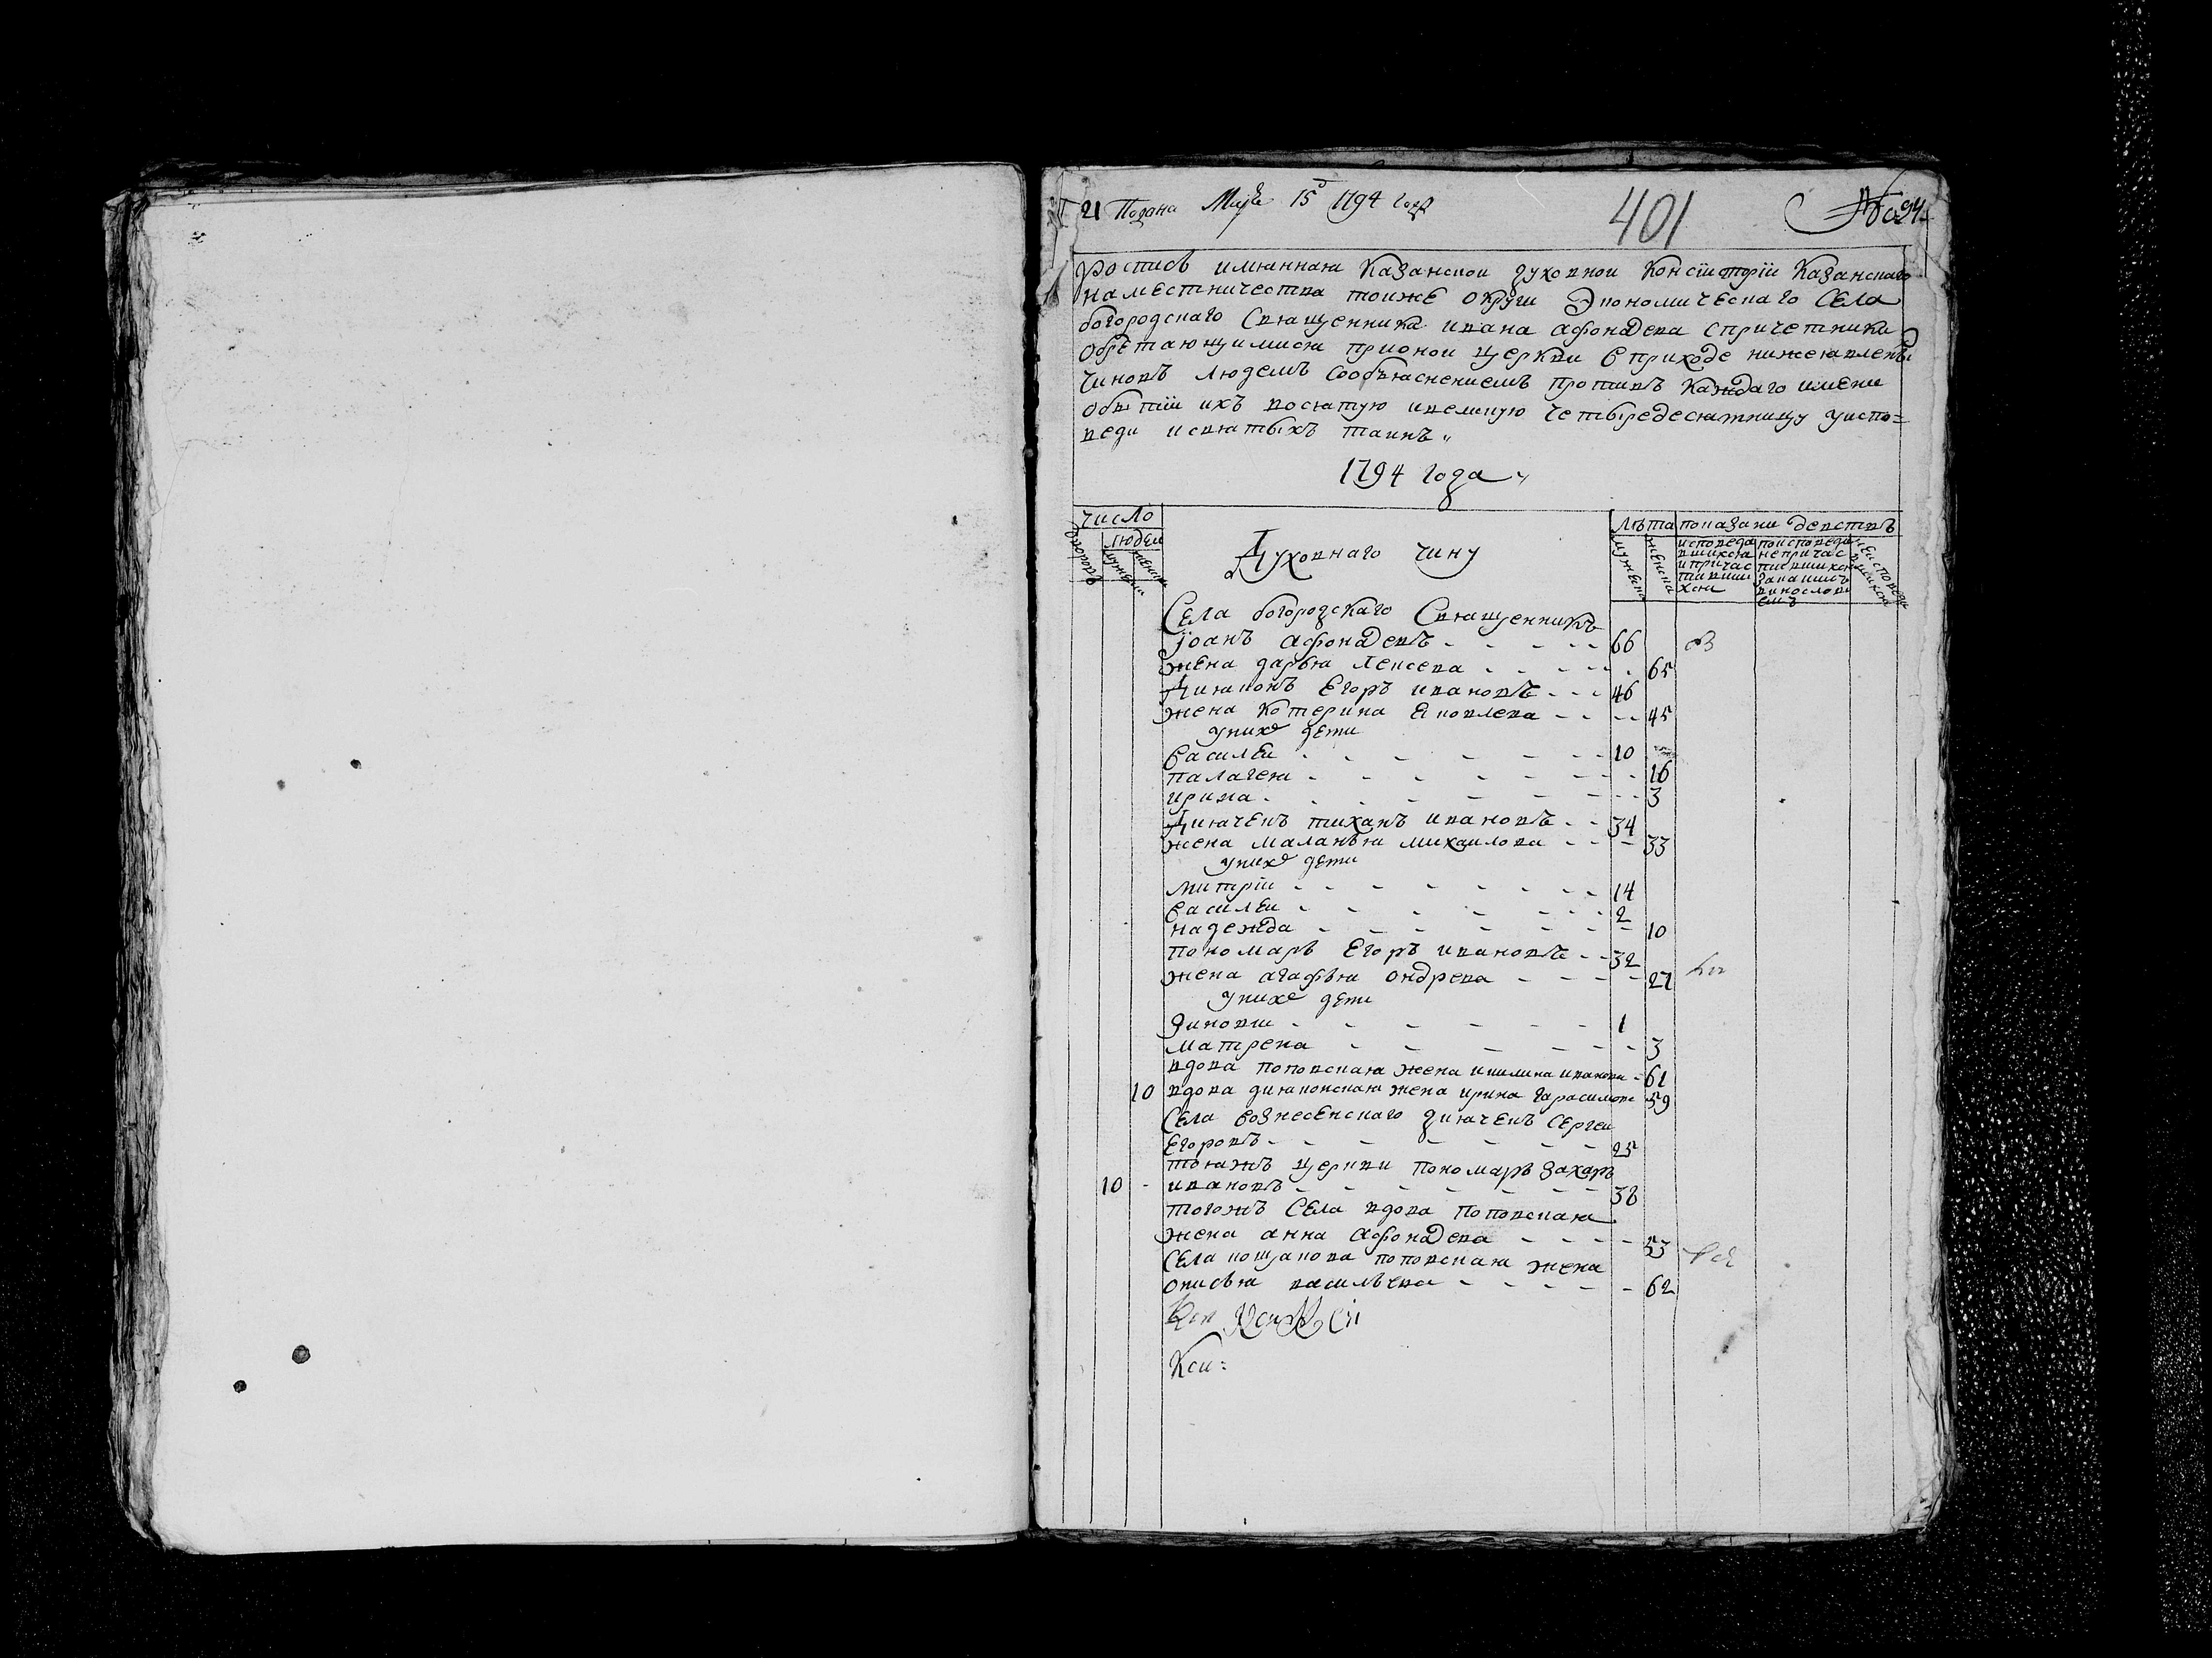 21 Подана Маіѧ 15 д 1794 года
401
№ 94
Роспись имяннаѧ Казанскои духовнои Консїсторїи Казанскаго
наместничества тоиже округи Экономическаго Села
богородскаго Священника ивана афонасева спричетники
обретающимися прионои церкви вприходе нижеявлены
чиновъ людемъ сообъяснениемъ противъ каждаго имени
обытїи ихъ восвятую ивеликую четыредесятницу уиспо=
веди исвятыхъ таинъ
1794 года
число
людеи
дворовъ
мужеи
жении
Духовнаго чину
лѣта
мужена
женина
показани деиствъ
исповеда
вшихся
ипричас
тивши
хся
поисповеди
непричас
тившихся
закаимъ
винослови
емъ
неисповеда
вшихся
Села богородскаго Священникъ
їоанъ афонасевъ 66
жена дарья лексева 65
Дияконъ Егоръ ивановъ 46
жена котерина яковлева 45
уних дети
василеи 10
палагея 16
ирина 3
Диячекъ тиханъ ивановъ 34
жена маланья михаилова 33
уних дети
митрїи 14
василеи 2
надежда 10
пономарь Егоръ ивановъ 32
жена агафья ондрева 27
уних дети
зиновии 1
матрена 3
вдова поповская жена акилина иванова 61
10 вдова дияконская жена ирина гарасимова 59
Села вознесенскаго диячекъ Сергеи
Егоровъ 25
тояжъ церкви пономарь захаръ
10 ивановъ 38
тогожъ Села вдова поповская
жена анна афонасева 53
Села кощакова поповская жена
онисья василъева 62